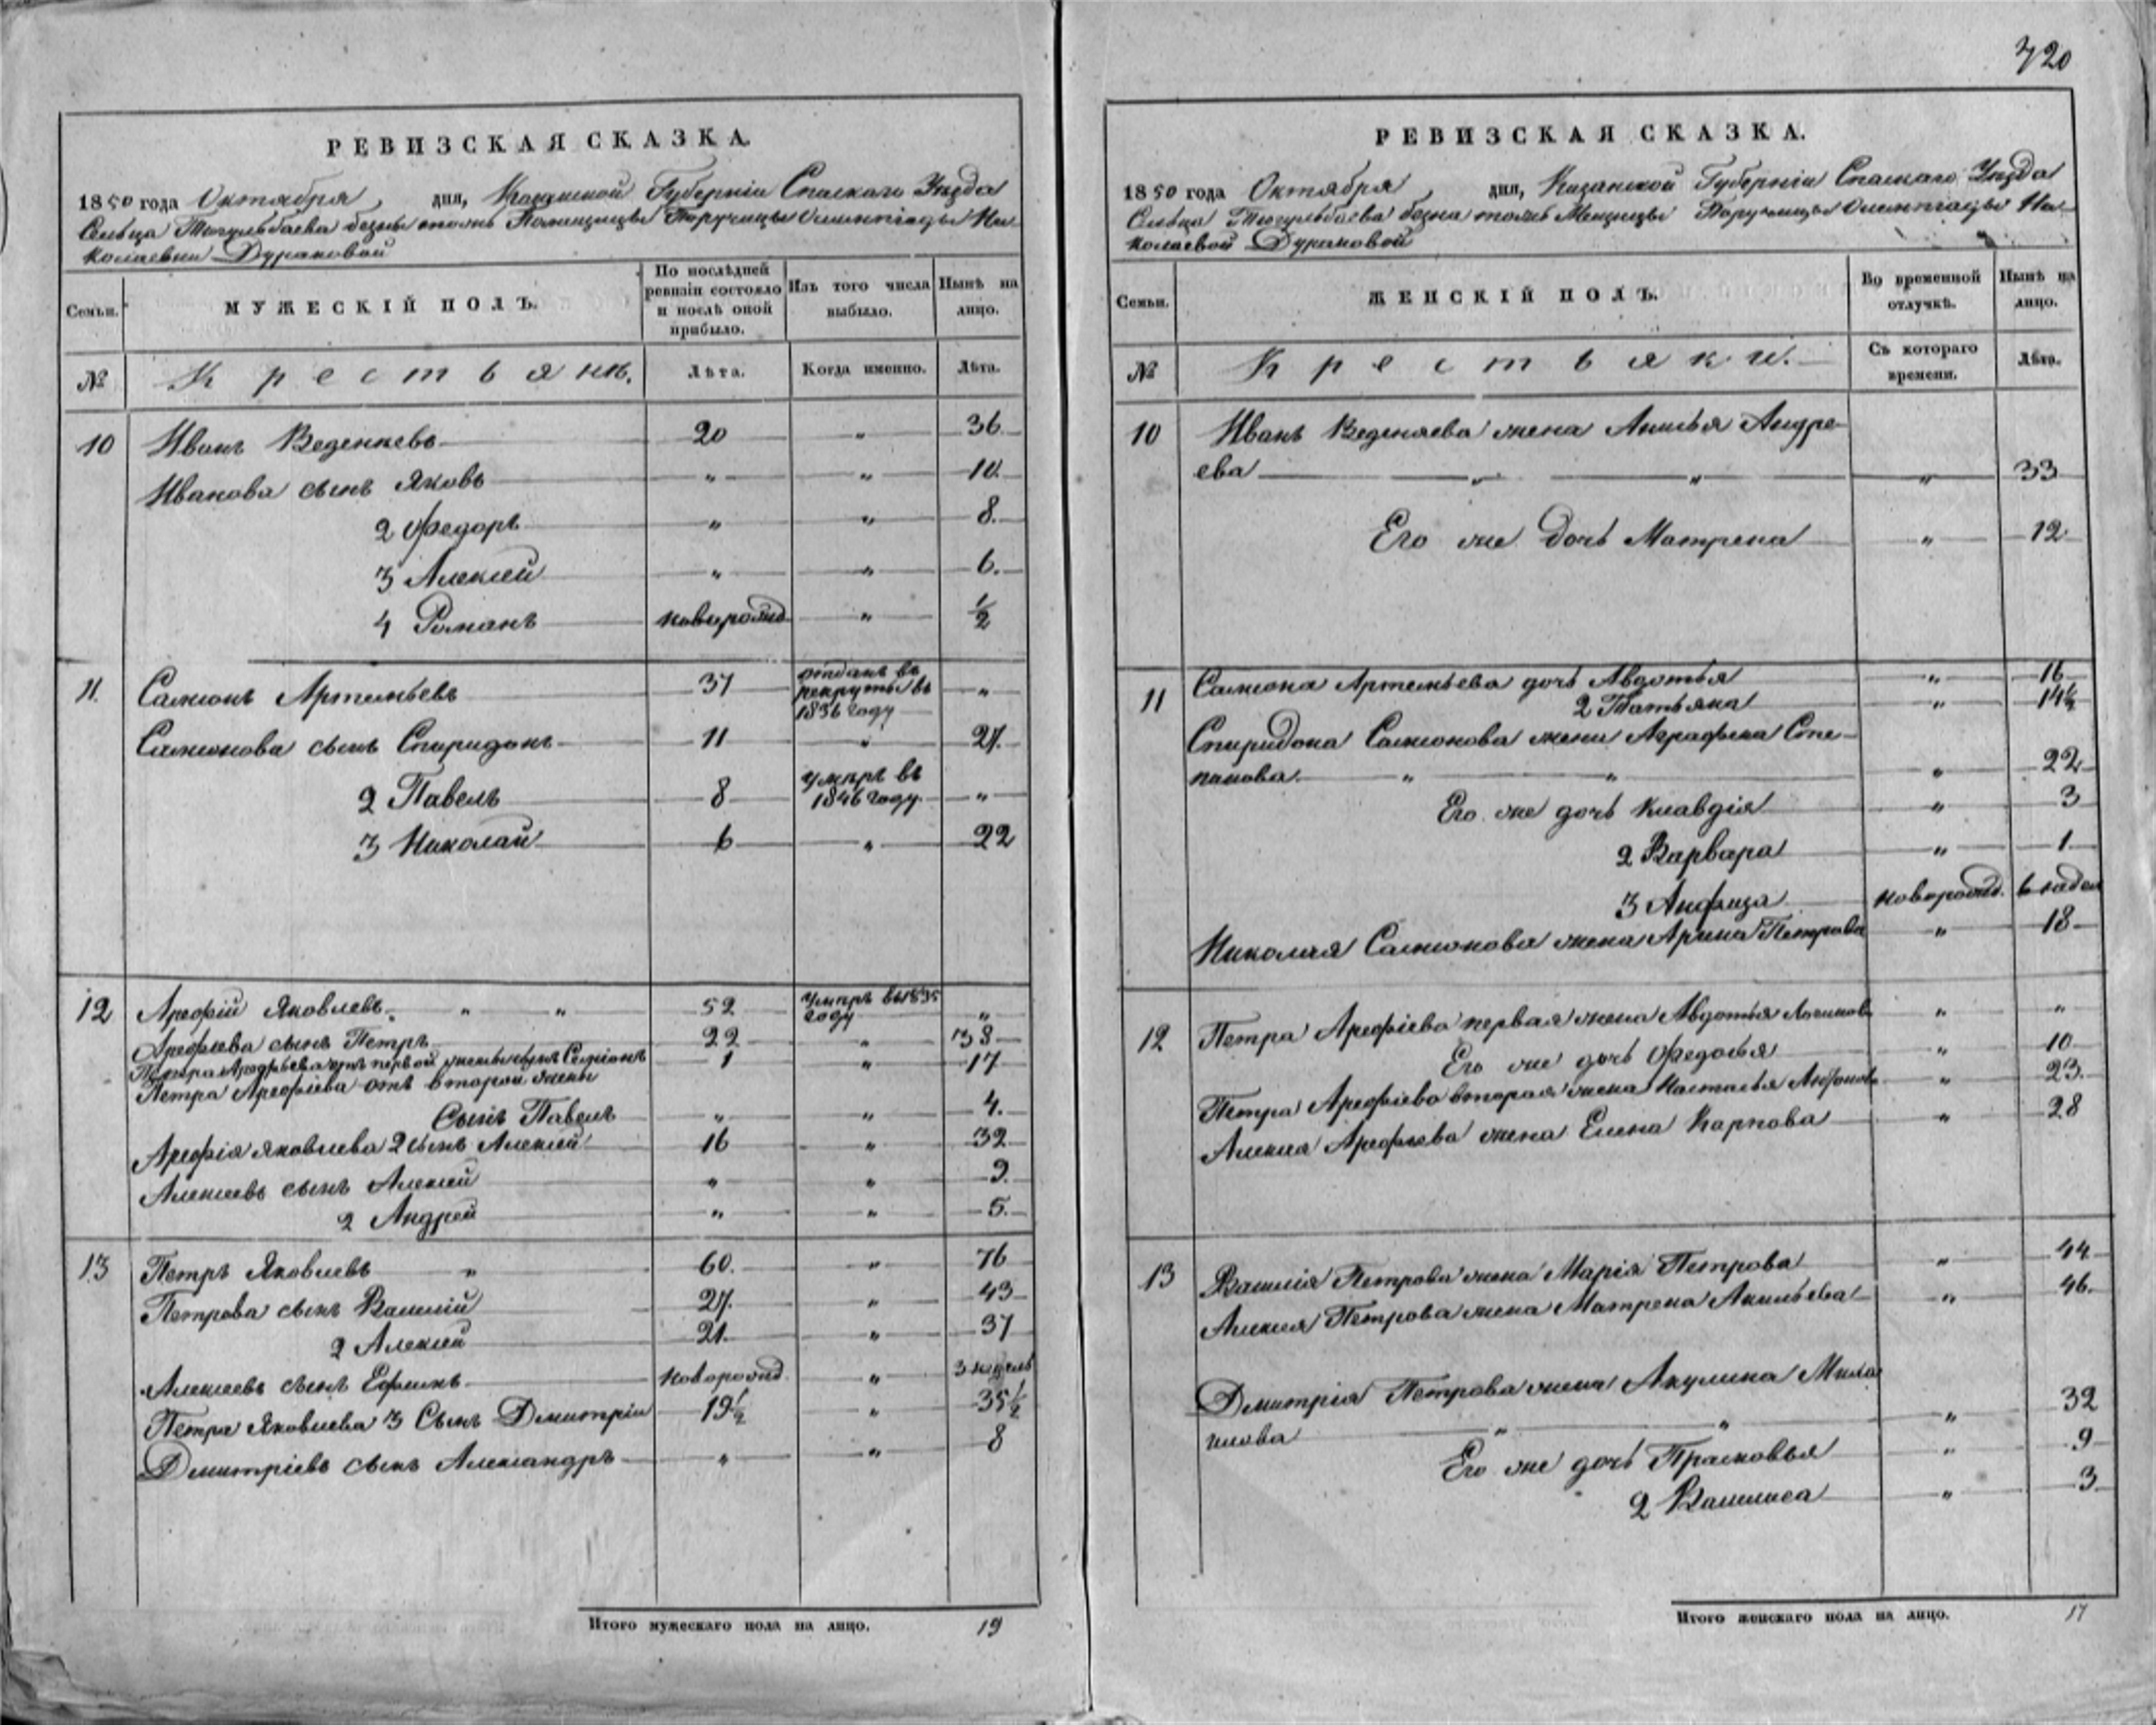 720
РЕВИЗСКАЯ СКАЗКА.
1850 года Октября дня, Казанской Губерніи Спаскаго Уѣзда
Сельца Тюгульбаева безна тожъ Помещицы Порутчицы Олимпіады Ни-
колаевны Дураковой
Семьи. МУЖЕСКІЙ ПОЛЪ. По послѣдней ревизіи состояло и послѣ оной прибыло. Изъ того числа выбыло. Нынѣ на лицо.
№ Крестьяне. Лѣта. Когда именно. Лѣта.
10 Иванъ Веденеевъ 20 " 36
Иванова сынъ Яковъ " " 10.
2 Федоръ " " 8.
3 Алексей " " 6.
4 Романъ новорожд " ½
11. Самсонъ Артемьевъ 37 отданъ въ рекруты въ 1836 году "
Самсонова сынъ Спиридонъ 11 " 27.
2 Павелъ 8 умеръ въ 1846 году. "
3 Николай 6 " 22
12 Арефій Яковлевъ " " 52 умеръ въ 1835 году "
Арефьева сынъ Петръ 22 " 38
Петра Арефьева отъ первой жены сынъ Семіонъ 1 " 17
Петра Арефіева отъ второй жены
Сынъ Павелъ " " 4.
Арефія Яковлева 2 сынъ Алексей 16 " 32
Алексеевъ сынъ Алексей " " 9.
2 Андрей " " 5.
13 Петръ Яковлевъ " 60. " 76
Петрова сынъ Василій 27. " 43
2 Алексей 21. " 37
Алексеевъ сынъ Ефимъ новорожд " 3 недель
Петра Яковлева 3 Сынъ Дмитріи 19½ " 35½
Дмитріевъ сынъ Александръ " " 8
Итого мужескаго пола на лицо. 19
РЕВИЗСКАЯ СКАЗКА.
1850 года Октября дня, Казанской Губерніи Спаскаго Уѣзда
Сельца Тюгульбаева безна тожъ Порутчицы Олимпіады Ни-
колаевой Дураковой
Семьи. ЖЕНСКІЙ ПОЛЪ. Во временной отлучкѣ. Нынѣ на лицо.
№ Крестьяки. Съ котораго времени. Лѣта.
10 Иванъ Веденяева жена Анисья Андре-
ева " " " 33
Его же дочь Матрена " 12
11 Самсона Артемьева дочь Авдотья " 16
2 Татьяна " 14½
Спиридона Самсонова жена Аграфена Сте-
панова " " " 22
Его же дочь Клавдія " 3
2 Варвара " 1
3 Анфиза новорожд. 6 недел
Николая Самсонова жена Арина Петрова " 18
12 Петра Арефіева первая жена Авдотья " "
Его же дочь Федосья " 10
Петра Арефіева вторая жена Настасья Антонов " 23.
Алексея Арефьева жена Елена Карпова " 28
13 Василія Петрова жена Марія Петрова " 44
Алексея Петрова жена Матрена Акильева " 46.
Дмитрія Петрова жена Акулина Миха
илова " " " 32
Его же дочь Прасковья " 9
2 Василиса " 3
Итого женскаго пола на лицо. 17